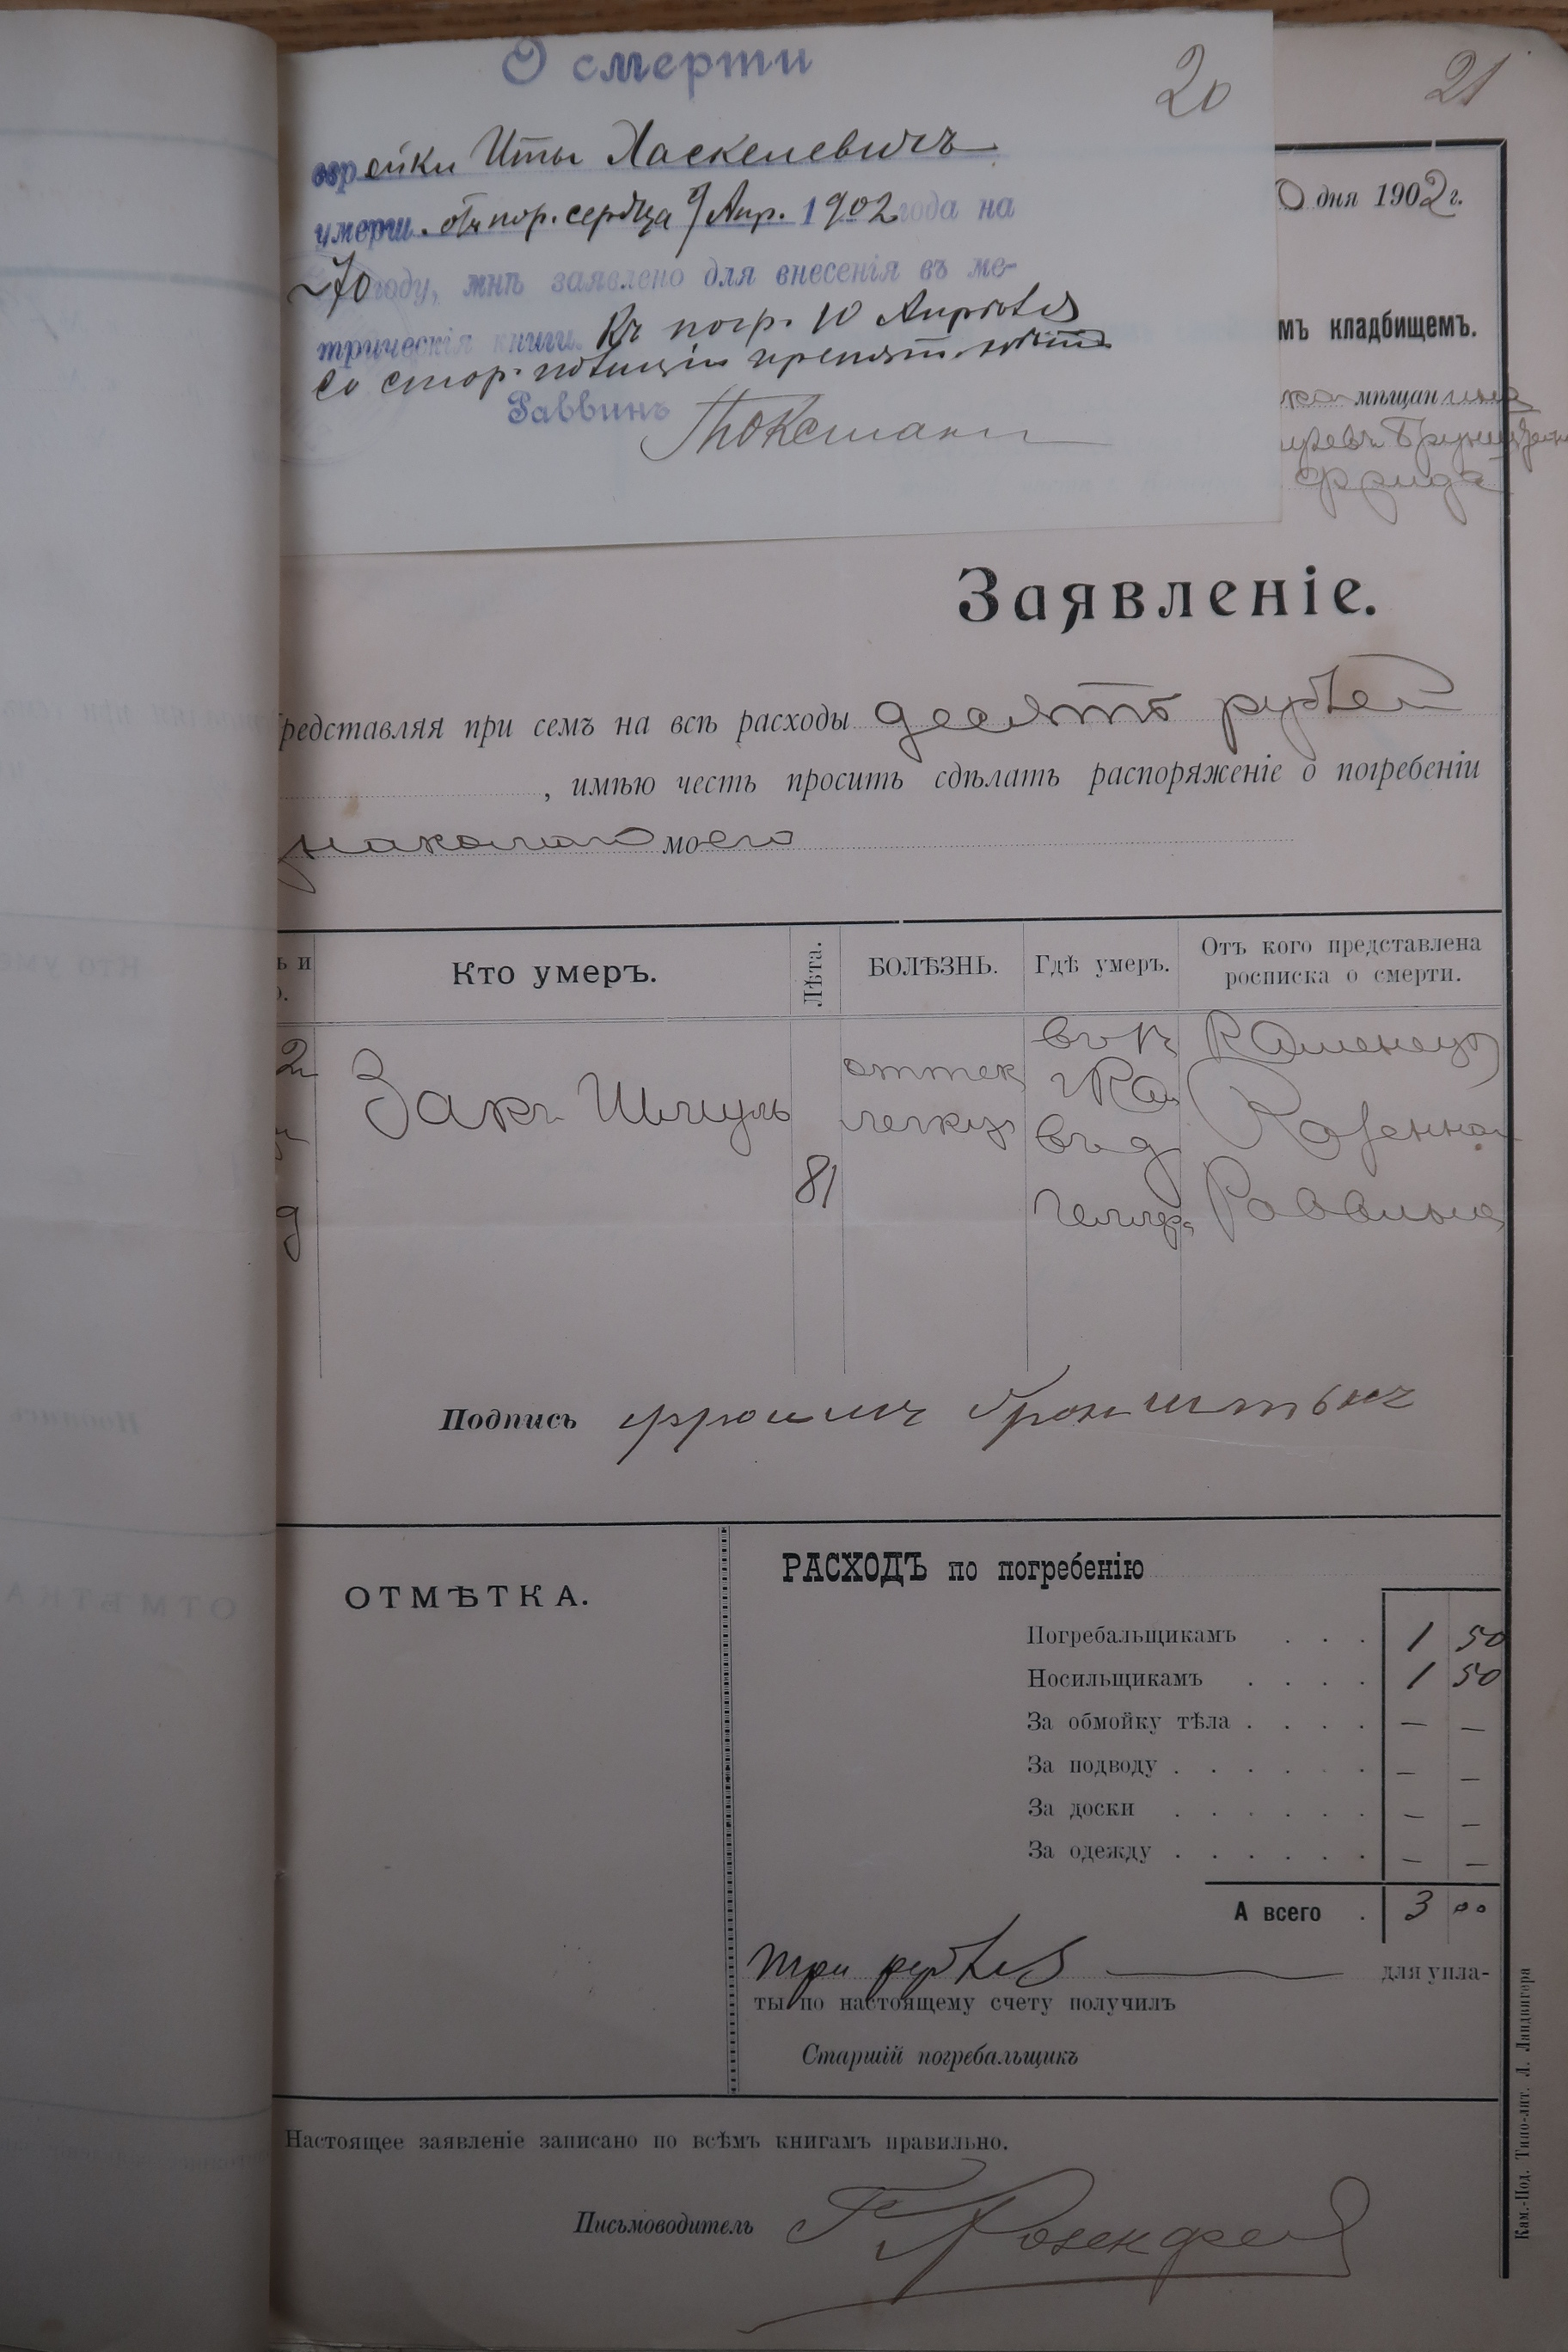 О смерти
20
21
еврейки Иты Хаскелевичъ
умерш. отъ пор. сердца 9 Апр. 1902 года на
70 году, мнѣ заявлено для внесенія въ ме-
трическія книги. Къ погр. 10 Апрѣля
со стор. полиціи препят. нѣтъ
Раввинъ
0 дня 1902 г.
мъ кладбищемъ.
мѣщан
Фрида
Заявленіе.
редставляя при семъ на всѣ расходы десять рублей
, имѣю честь просить сдѣлать распоряженіе о погребеніи
знакомаго моего
ь и
Кто умеръ.
Лѣта.
БОЛѢЗНЬ.
Гдѣ умеръ.
Отъ кого представлена
росписка о смерти.
Закъ Шмуль
81
оттек
легких
въ К
г Кам
въ д
Каменецъ
Казеннаго
Раввина
Подпись Фроимъ Бронштейнъ
ОТМѢТКА.
РАСХОДЪ по погребенію
Погребальщикамъ . . . 1 50
Носильщикамъ . . . . 1 50
За обмойку тѣла . . . . — —
За подводу . . . . . . — —
За доски . . . . . . — —
За одежду . . . . . . — —
А всего . 3 00
три рубля — для упла-
ты по настоящему счету получилъ
Старшій погребальщикъ
Настоящее заявленіе записано по всѣмъ книгамъ правильно.
Письмоводитель Г Розенфел
Кам.-Под. Типо-лит. Л. Ландвигера